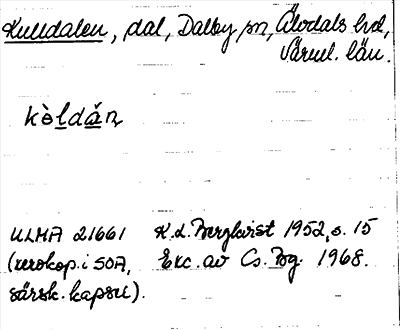 Kulldalen, dal, Dalby sn, Älvdals hd,
Värml. län.
kòldán
ULMA 21661 K.L. Bergkvist 1952, s. 15
(xerokop. i SOA, Exc. av Cs. Bg. 1968.
särsk. kapsel).